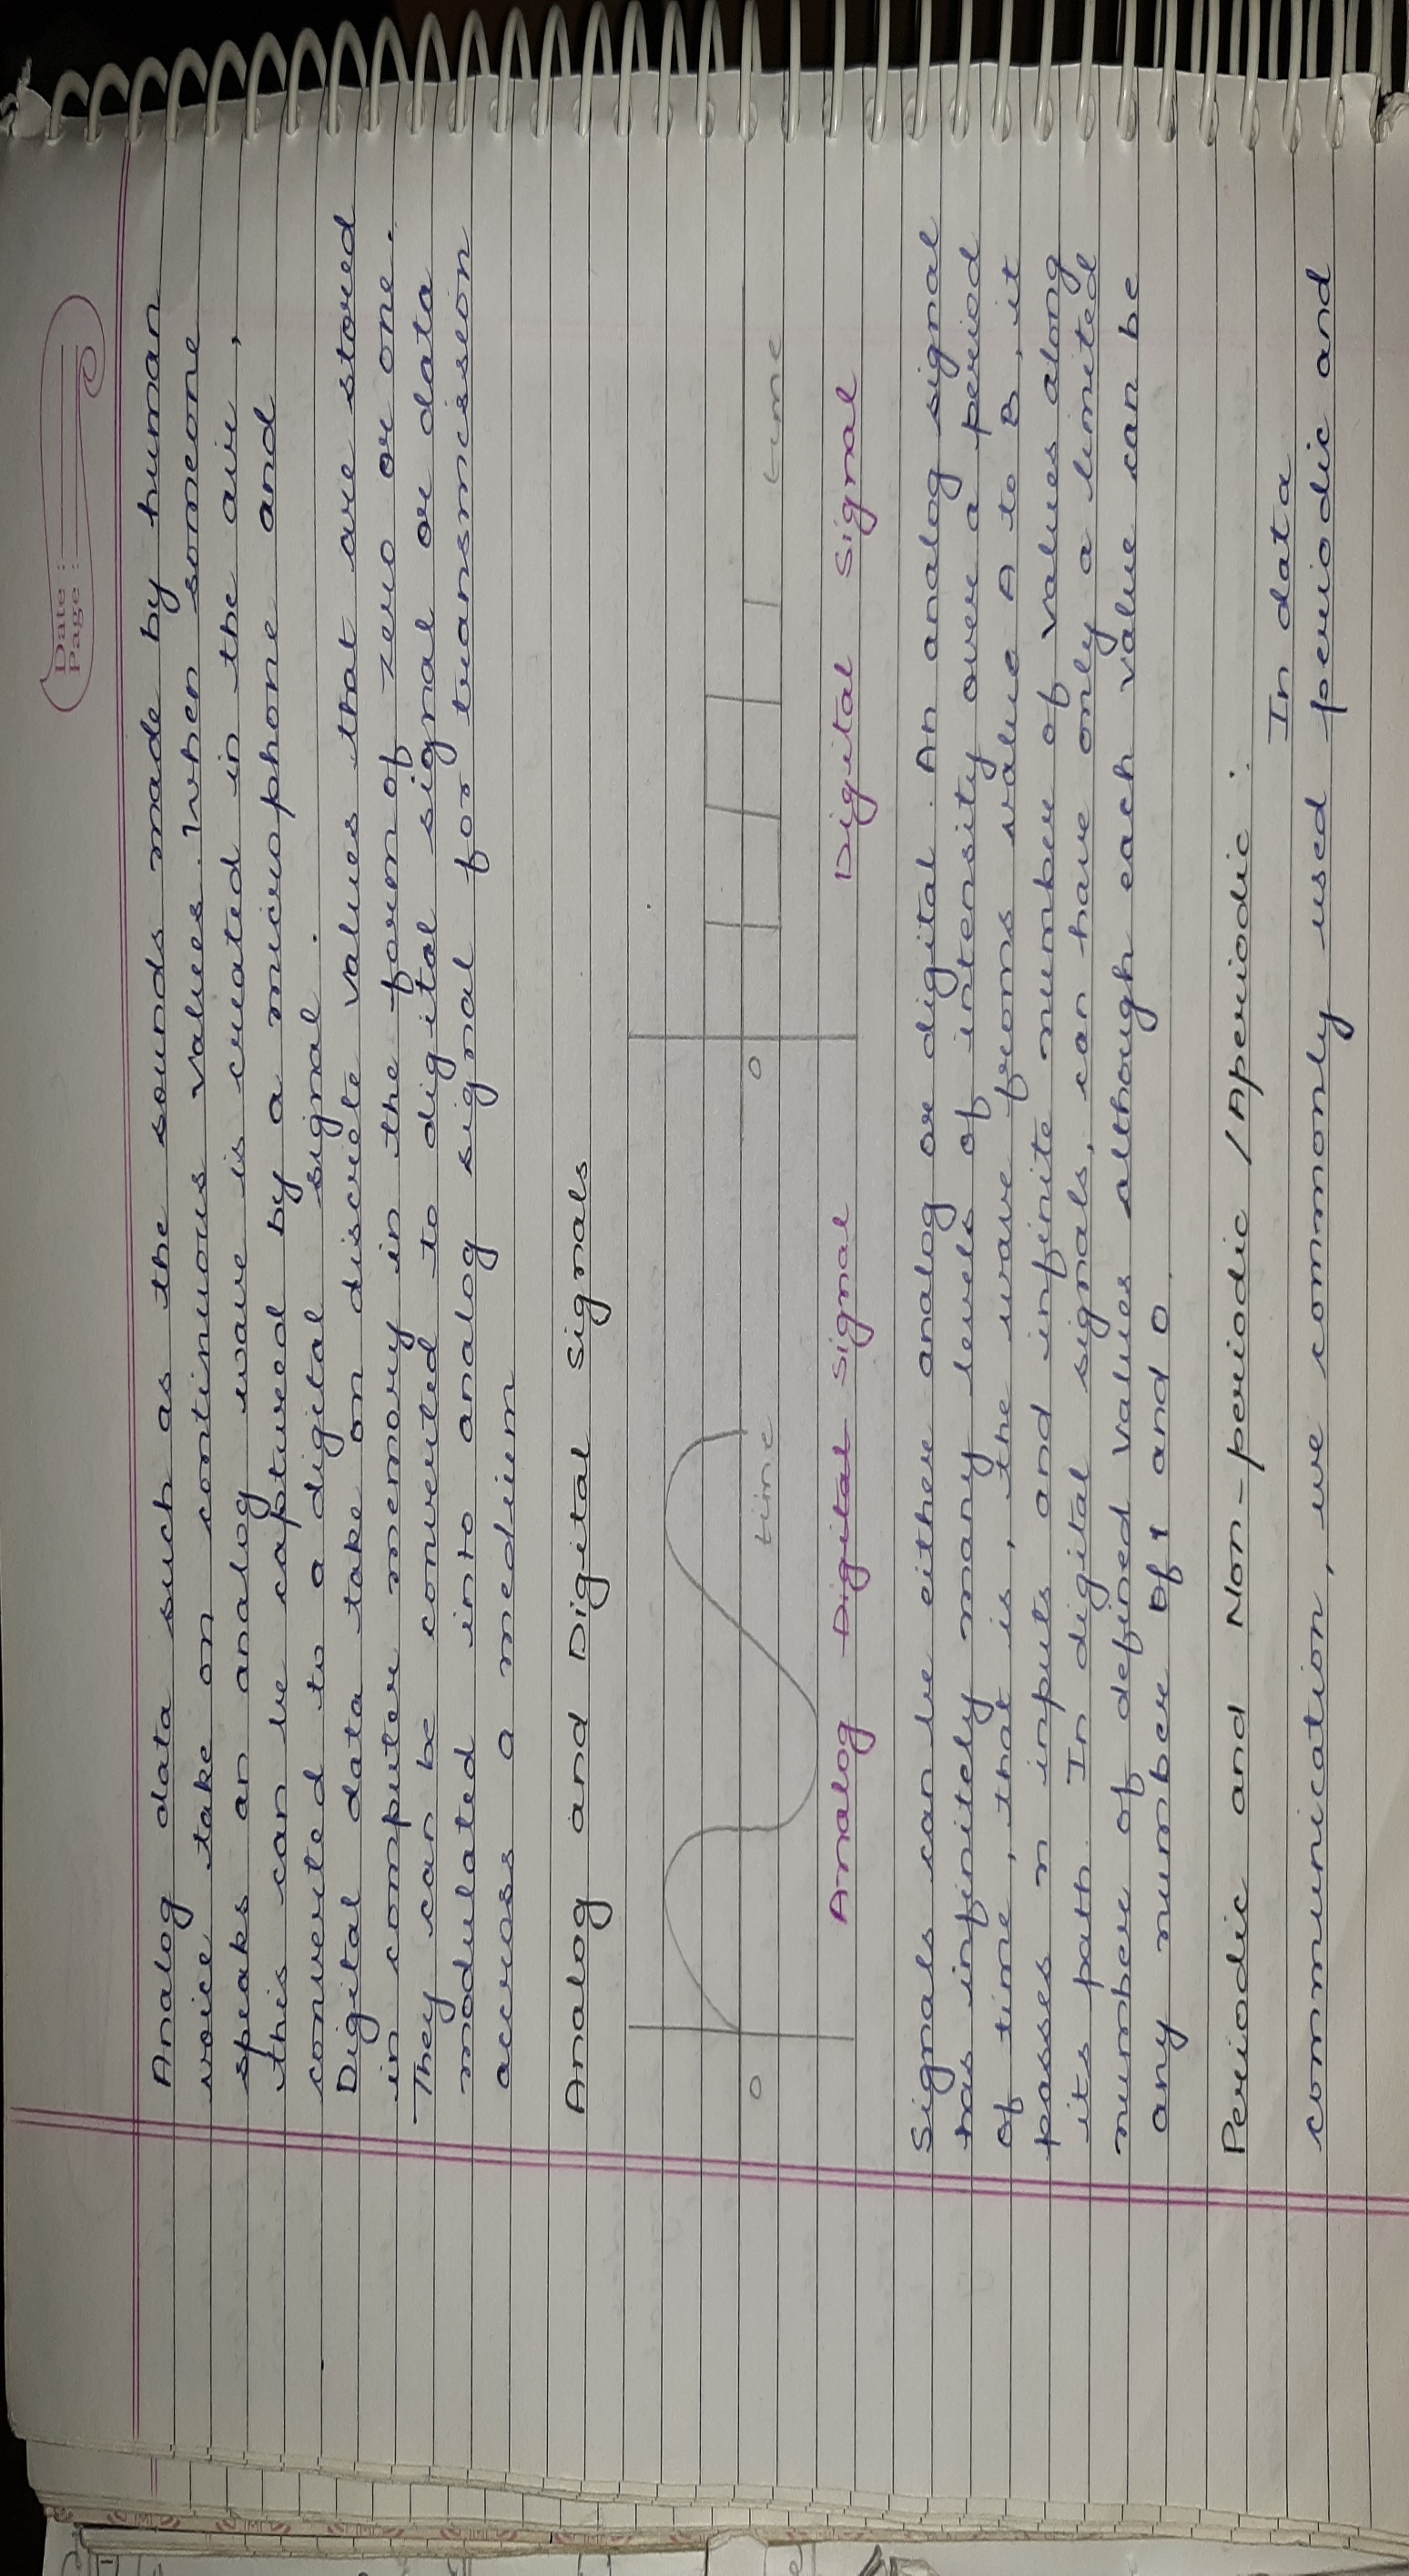 Date :
Page :
Analog data such as the sounds made by human
voice take on continuous values. When someone
speaks an analog wave is created in the air,
this can be captured by a microphone and
converted to a digital signal.
Digital data take on discrete values that are stored
in computer memory in the form of zero or one.
They can be converted to digital signal or data
modulated into analog signal for transmission
across a medium
Analog and Digital Signals
0 time 0 time
Analog Digital Signal Digital Signal
Signals can be either analog or digital. An analog signal
has infinitely many levels of intensity over a period
of time, that is, the wave froms value A to B, it
passes n inputs and infinite number of values along
its path. In digital signals, can have only a limited
number of defined values although each value can be
any number of 1 and 0.
Periodic and Non-periodic / Aperiodic :
In data
communication, we commonly used periodic and